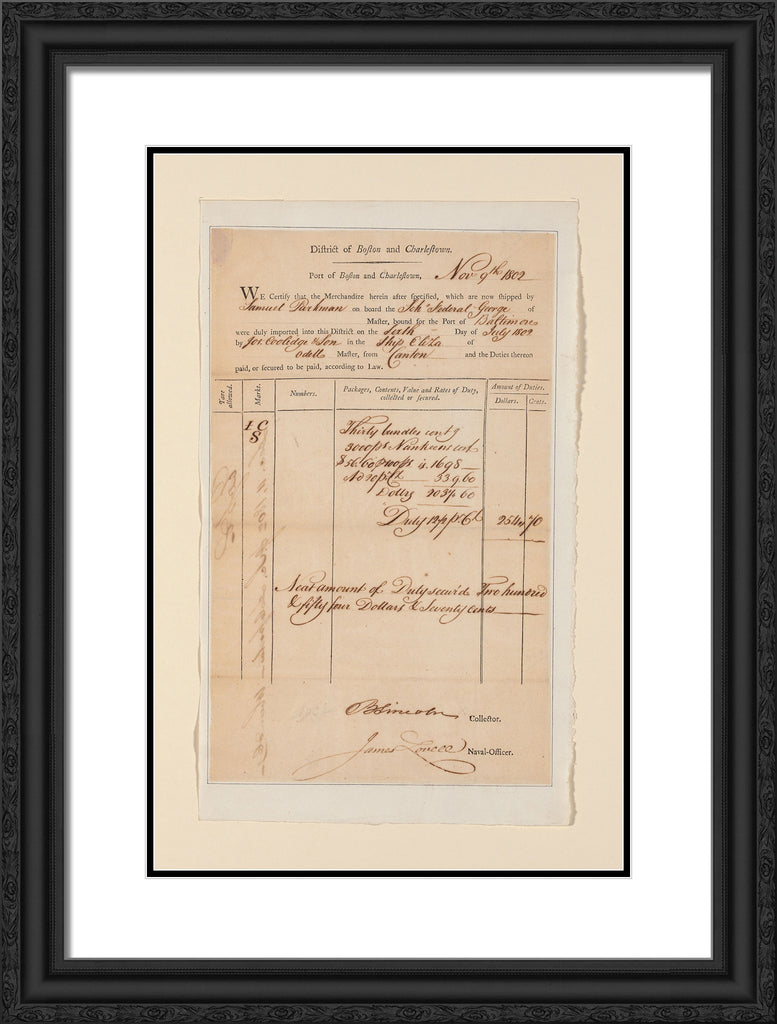 Diſtrict of Boſton and Charleſtown.
Port of Boſton and Charleſtown, Nov 9th 1802
WE Certify that the Merchandize herein after ſpecified, which are now ſhipped by
Samuel Parkman on board the Sch Federal George of
Maſter, bound for the Port of Baltimore
were duly imported into this Diſtrict on the Sixth Day of July 1802
by Jos. Coolidge & Son in the Ship Eliza of
Odell Maſter, from Canton and the Duties thereon
paid, or ſecured to be paid, according to Law.
Tare allowed.
Marks.
Numbers.
Packages, Contents, Value and Rates of Duty, collected or ſecured.
Amount of Duties.
Dollars.
Cents.
I C
S
Thirty bundles contg
3000 ps Nankeens cost
$56.60 p 100 ps is 1698
Ad 20 p Ct 339.60
Dollars 2037.60
Duty 12½ p Ct 254 70
Neat amount of Duty secur'd Two hundred
& fifty four Dollars & Seventy cents
B Lincoln Collector.
James Lovell Naval-Officer.